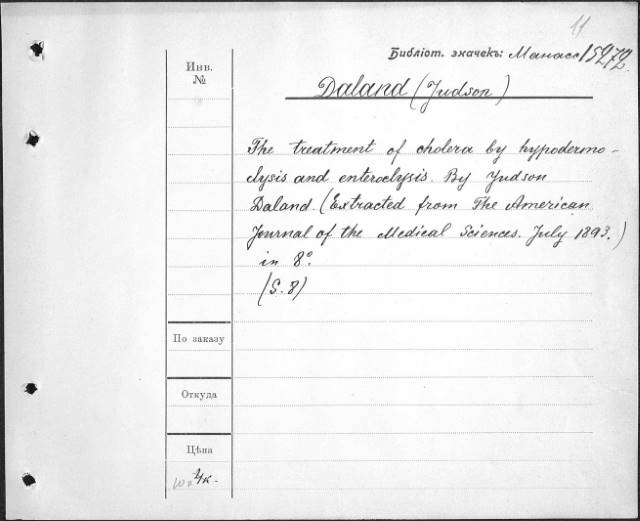 11
Библіот. значекъ: Манасс 15272.
Инв.
№
Daland (Judson)
The treatment of cholera by hypodermo-
clysis and enteroclysis. By Judson
Daland. (Extracted from The American
Journal of the Medical Sciences. July 1893.)
in 8°.
(S. 8)
По заказу
Откуда
Цѣна
4к.